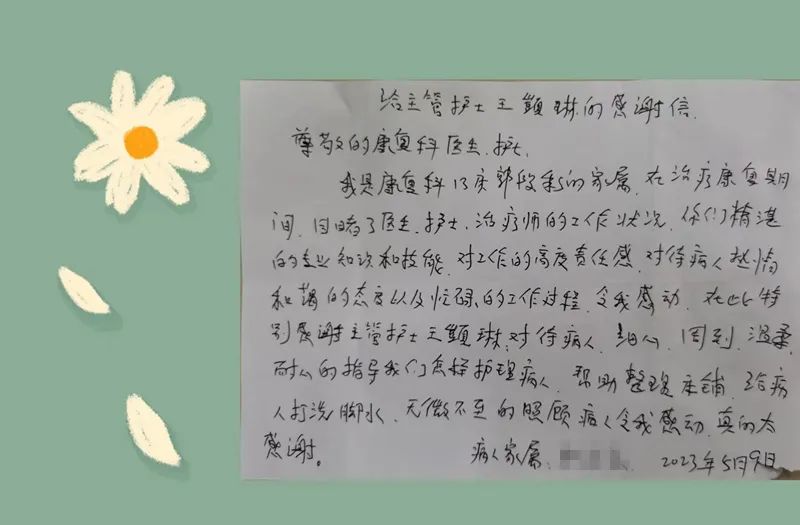 给主管护士王颢琳的感谢信.
尊敬的康复科医生.护士.
我是康复科13床的家属.在治疗康复期
间.目睹了医生.护士.治疗师的工作状况.你们精湛
的专业知识和技能.对工作的高度责任感.对待病人热情
和蔼的态度以及忙碌的工作过程.令我感动.在此特
别感谢主管护士王颢琳.对待病人.细心.周到.温柔.
耐心的指导我们怎样护理病人.帮助整理床铺.给病
人打洗脚水.无微不至的照顾病人令我感动.真的太
感谢。
病人家属: 2023年5月9日